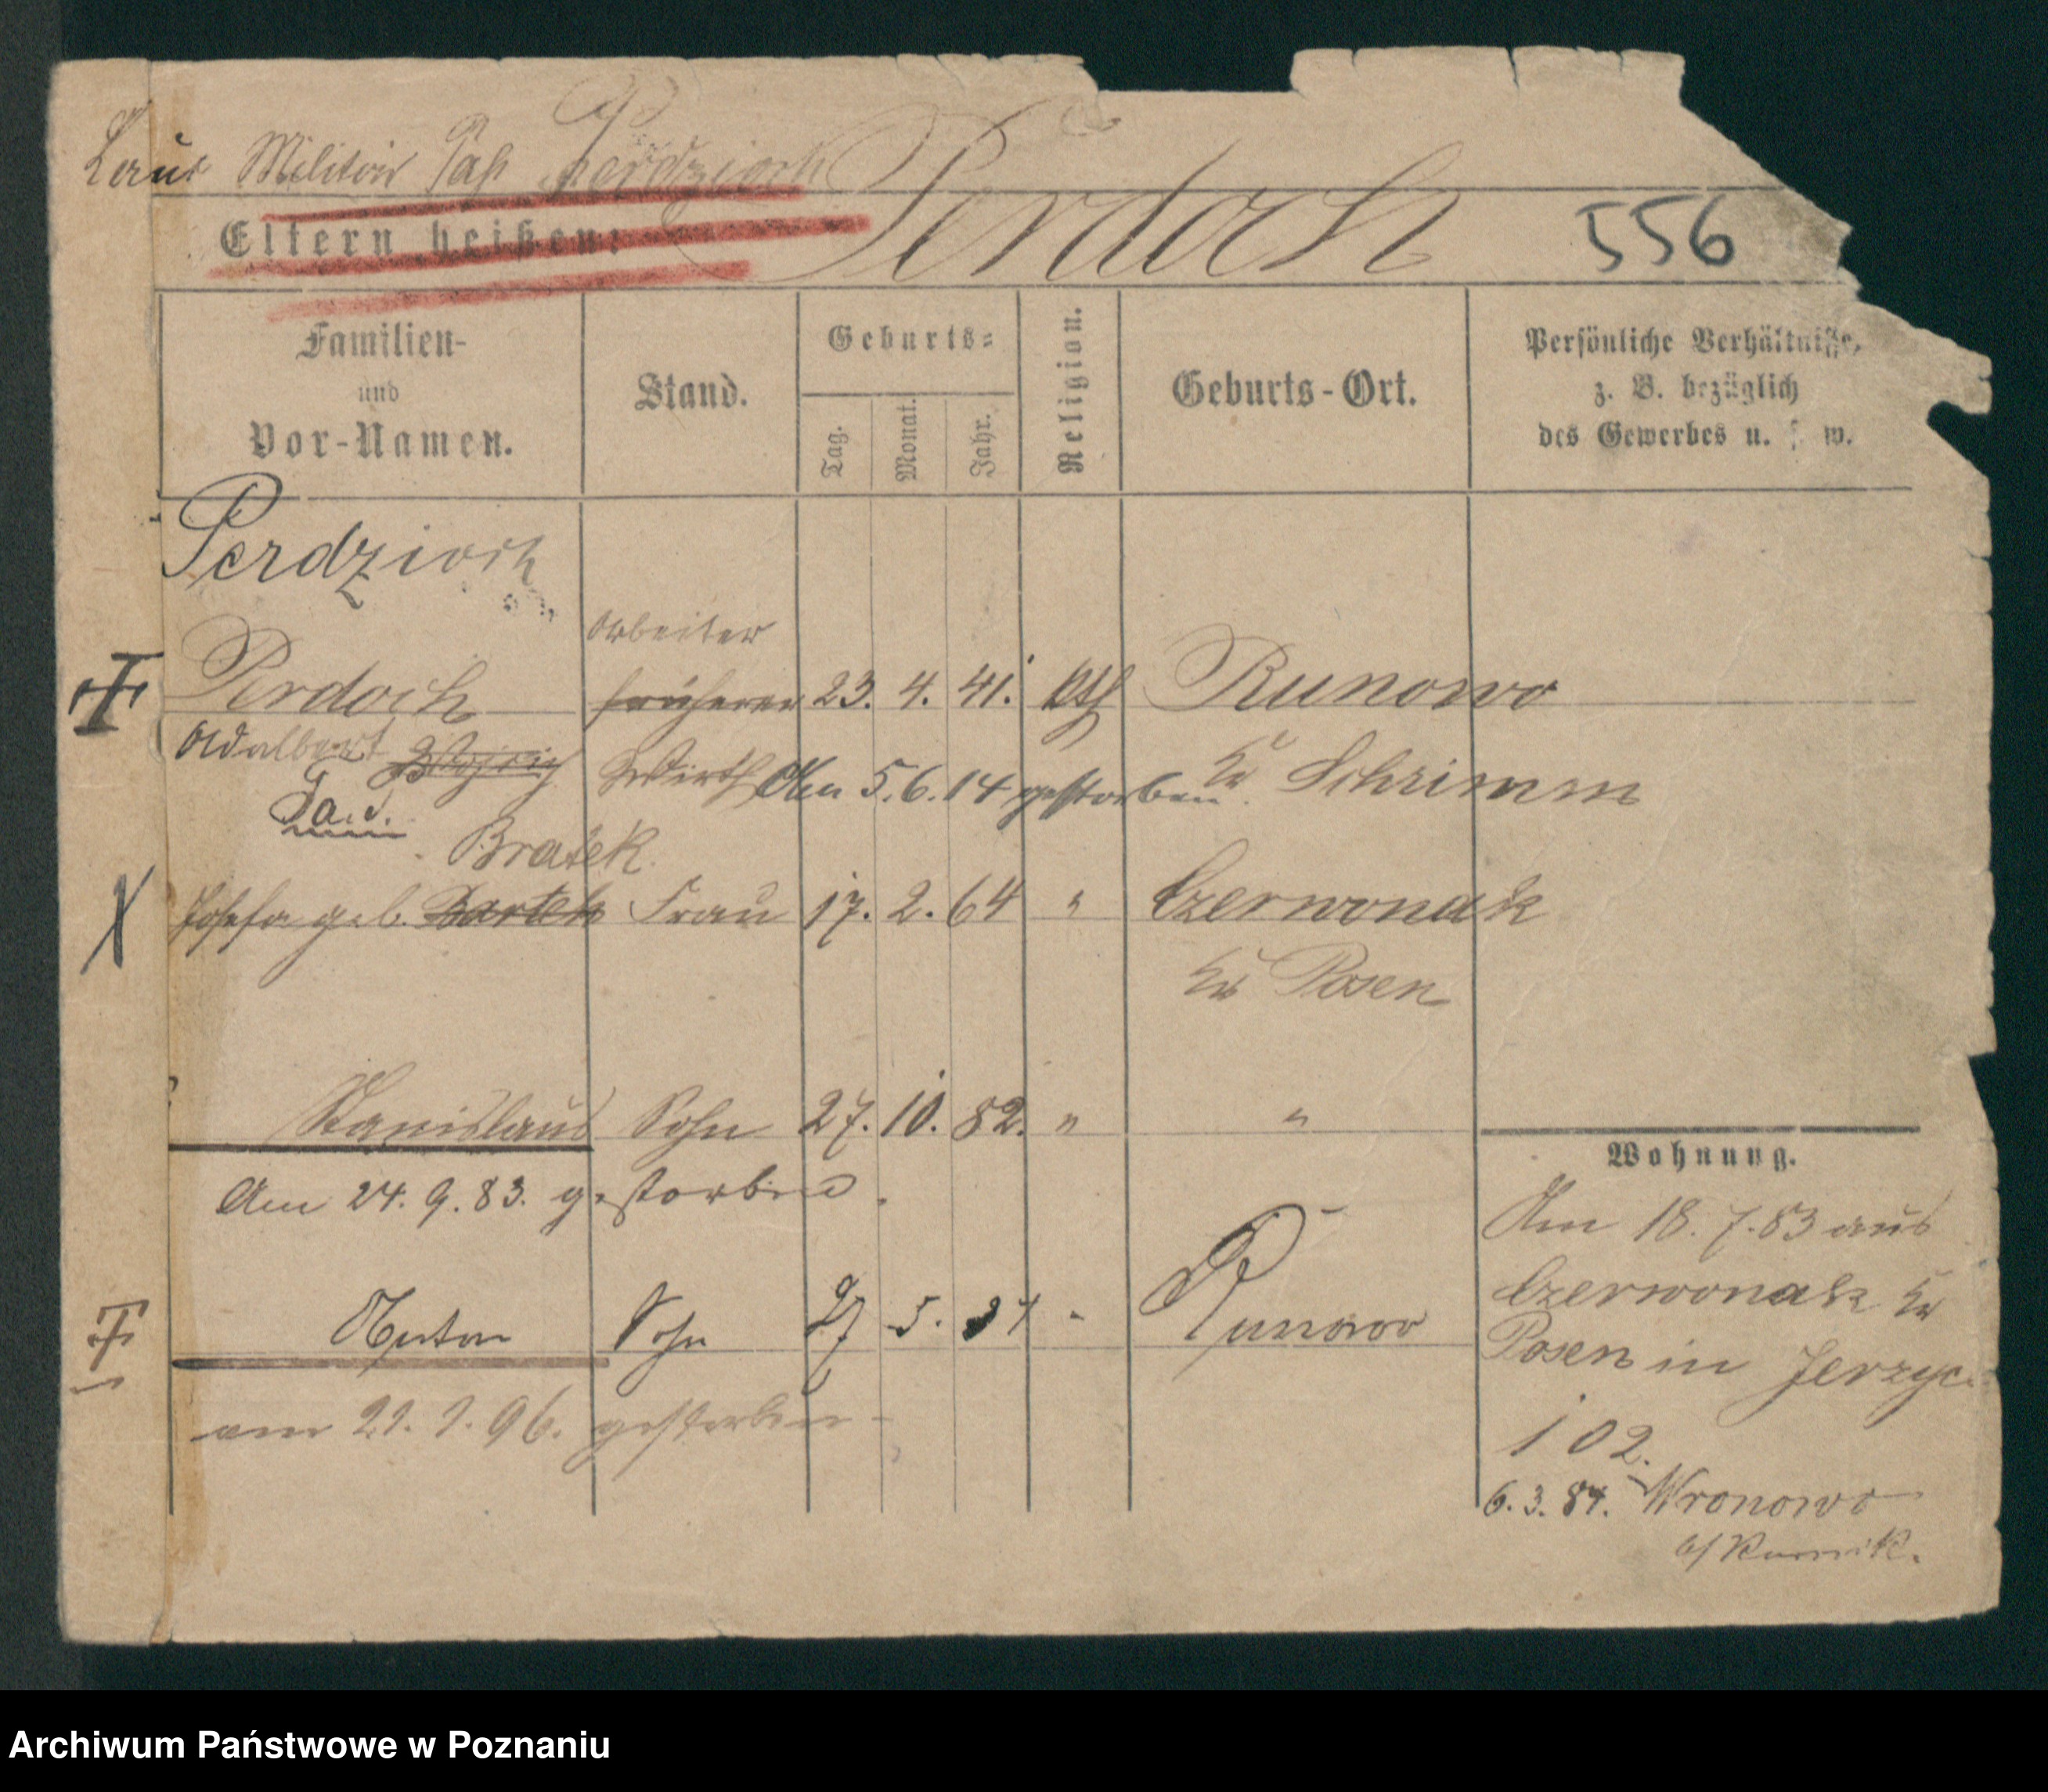 Laut Militair Paß Perdzioch
Eltern heißen: Perdoch 556
Familien-
und
Vor-Namen.
Stand.
Geburts-
Tag.
Monat.
Jahr.
Religion.
Geburts-Ort.
Persönliche Verhältnisse,
z. B. bezüglich
des Gewerbes u. s. w.
Perdzioch
Arbeiter
Perdoch früherer 23. 4. 41. kth Runowo
Adalbert Wirth Am 5.6.14 gestorben. Kr Schrimm
Bratek.
Josefa geb. Bartek Frau 17. 2. 64 " Czerwonak
Kr Posen
Stanislaus Sohn 27. 10. 82. " "
Am 24. 9. 83. gestorben.
Anton Sohn 27 5. Runowo
am 21. 1. 96. gestorben
Wohnung.
Am 18. 7. 83 aus
Czerwonak Kr
Posen in Jerzyc.
102.
6. 3. 84. Wronowo
b/ Kurnik.
Archiwum Państwowe w Poznaniu